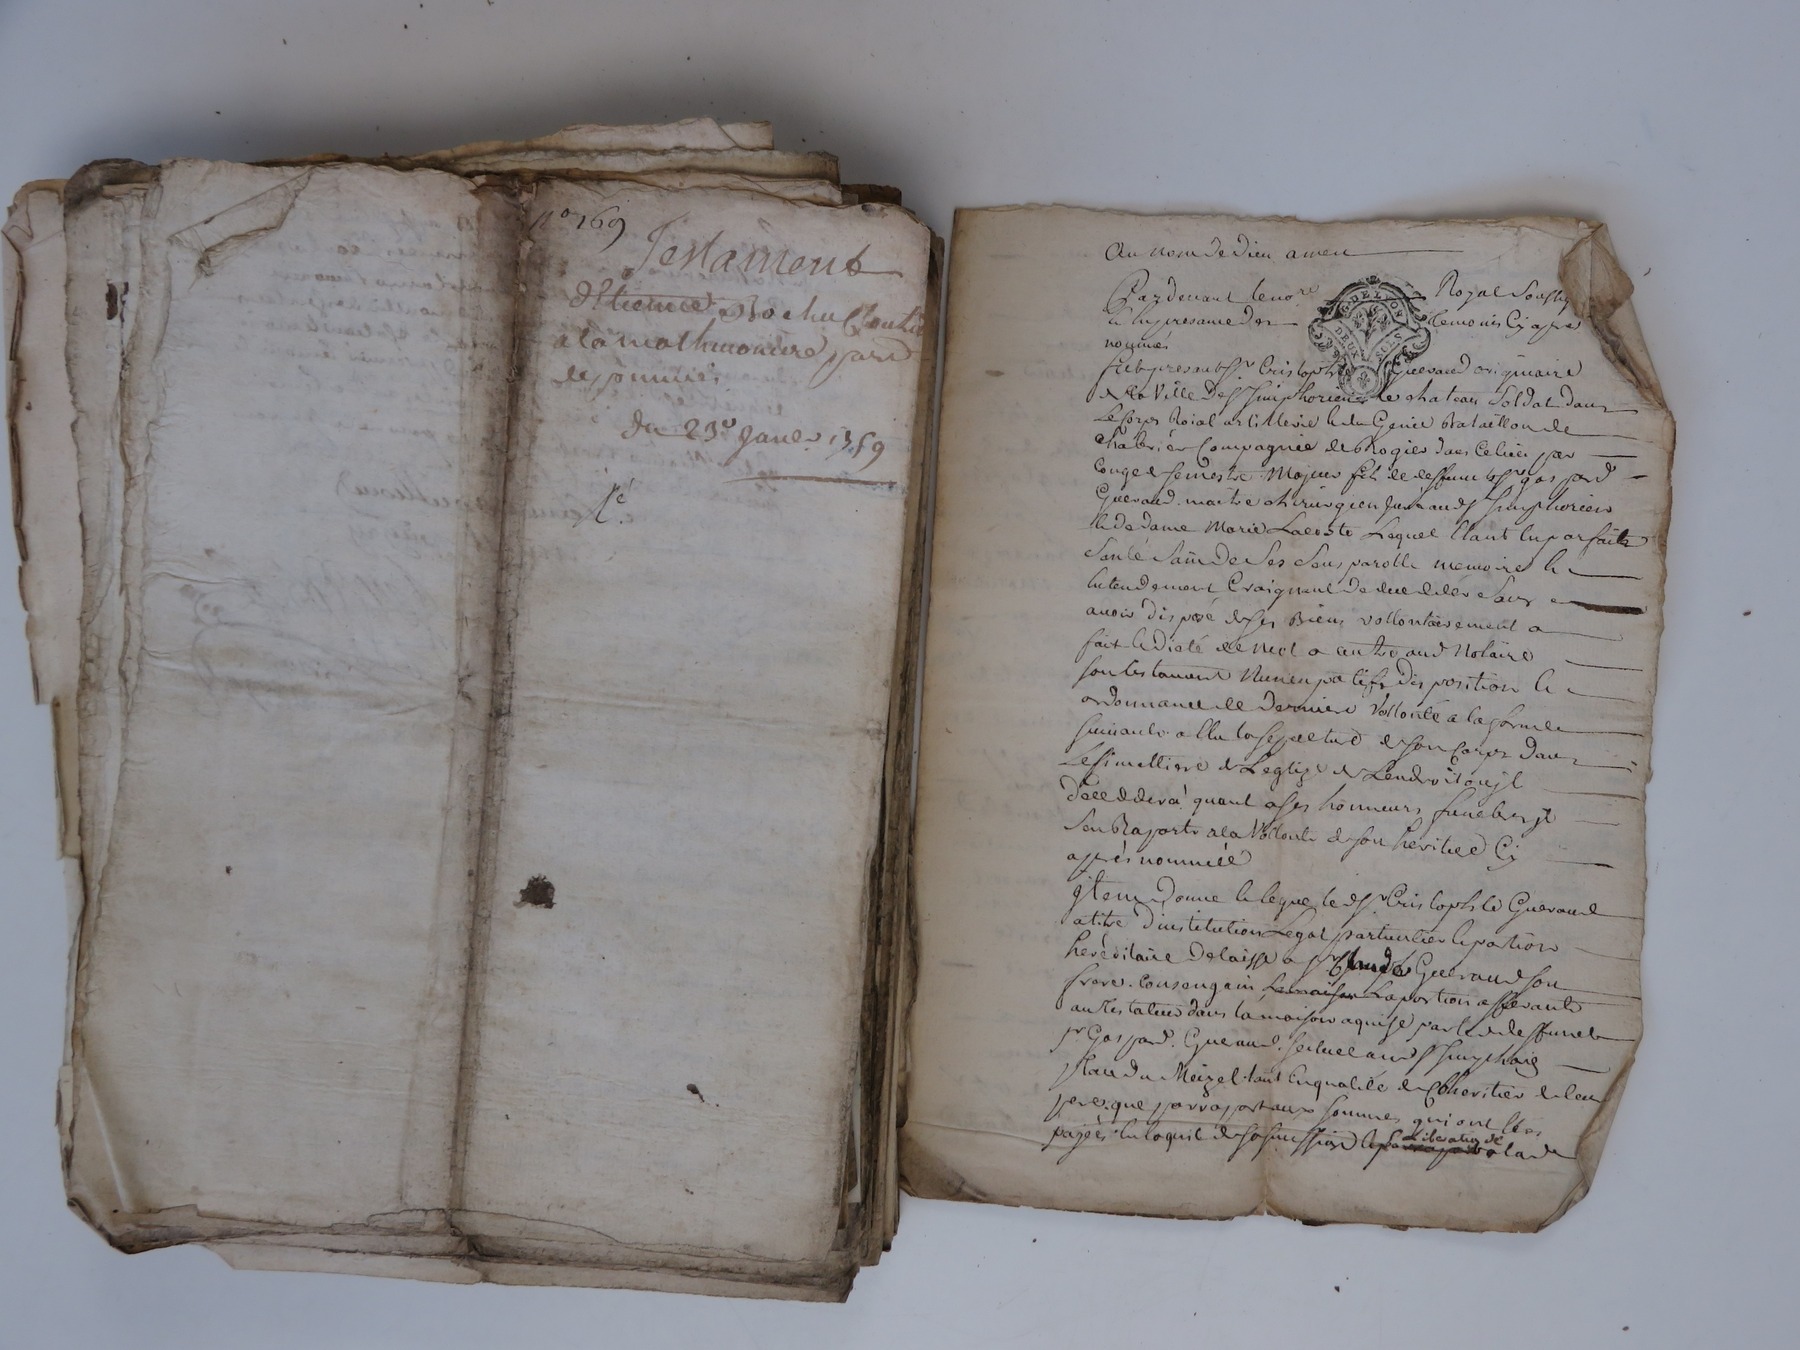 n° 169
Testament
d'Etienne Rochu
a la mothmoniere par
de pommiers
du 23e Janer 1759
Cé
Au nom de Dieu amen
Pardevant le nore Royal Soussig
G.DE LYON
DEUX SOLS
Et En presance des temoins Cy apres
nommés
fut present Sr Cristophle Gueraud originaire
de la Ville de St Simphorien le chateau Soldat dans
Le Corps Roial artillerie et du Genie Bataillon de
Chabrié Compagnie de Rogier dans Ce lieu par
Congé de Semestre Majeur fils de deffunt Sr gaspard
Gueraud maitre chirurgien Juré aud St Simphorien
et de dame Marie Lacoste Lequel Etant En parfaite
Santé Sain de Ses Sens parolle memoire Et
Entendement Craignant de deceder Sans
avoir disposé de Ses Biens vollontairement a
fait et dicté de mot a autre aud Notaire
Son testament Nuncupatif disposition Et
ordonnance de derniere Vollonté a la forme
Suivante a Elu la Sepulture de Son Corps dans
Le Simettiere de L'eglize de L'endroit ou jl
décéddera quant a Ses honneurs funebres jl
S'en Raporte a la Vollonté de Son heritier Cy
après nommée
jtem donne Et legue led Sr Cristophle Gueraud
a titre d'institution Legat particulier Et portion
heréditaire delaisse a Sr Claude Gueraud Son
frere Consanguin La portion afferante
au testateur dans la maison aquise par led deffunt
Sr Gaspard Gueraud Scituée aud St Simphorien
place du Meizel tant En qualité de Coheritier de leur
pere que par raport aux Sommes qui ont Etés
payées En l'aquit de Sa Succession Et liberation de lad